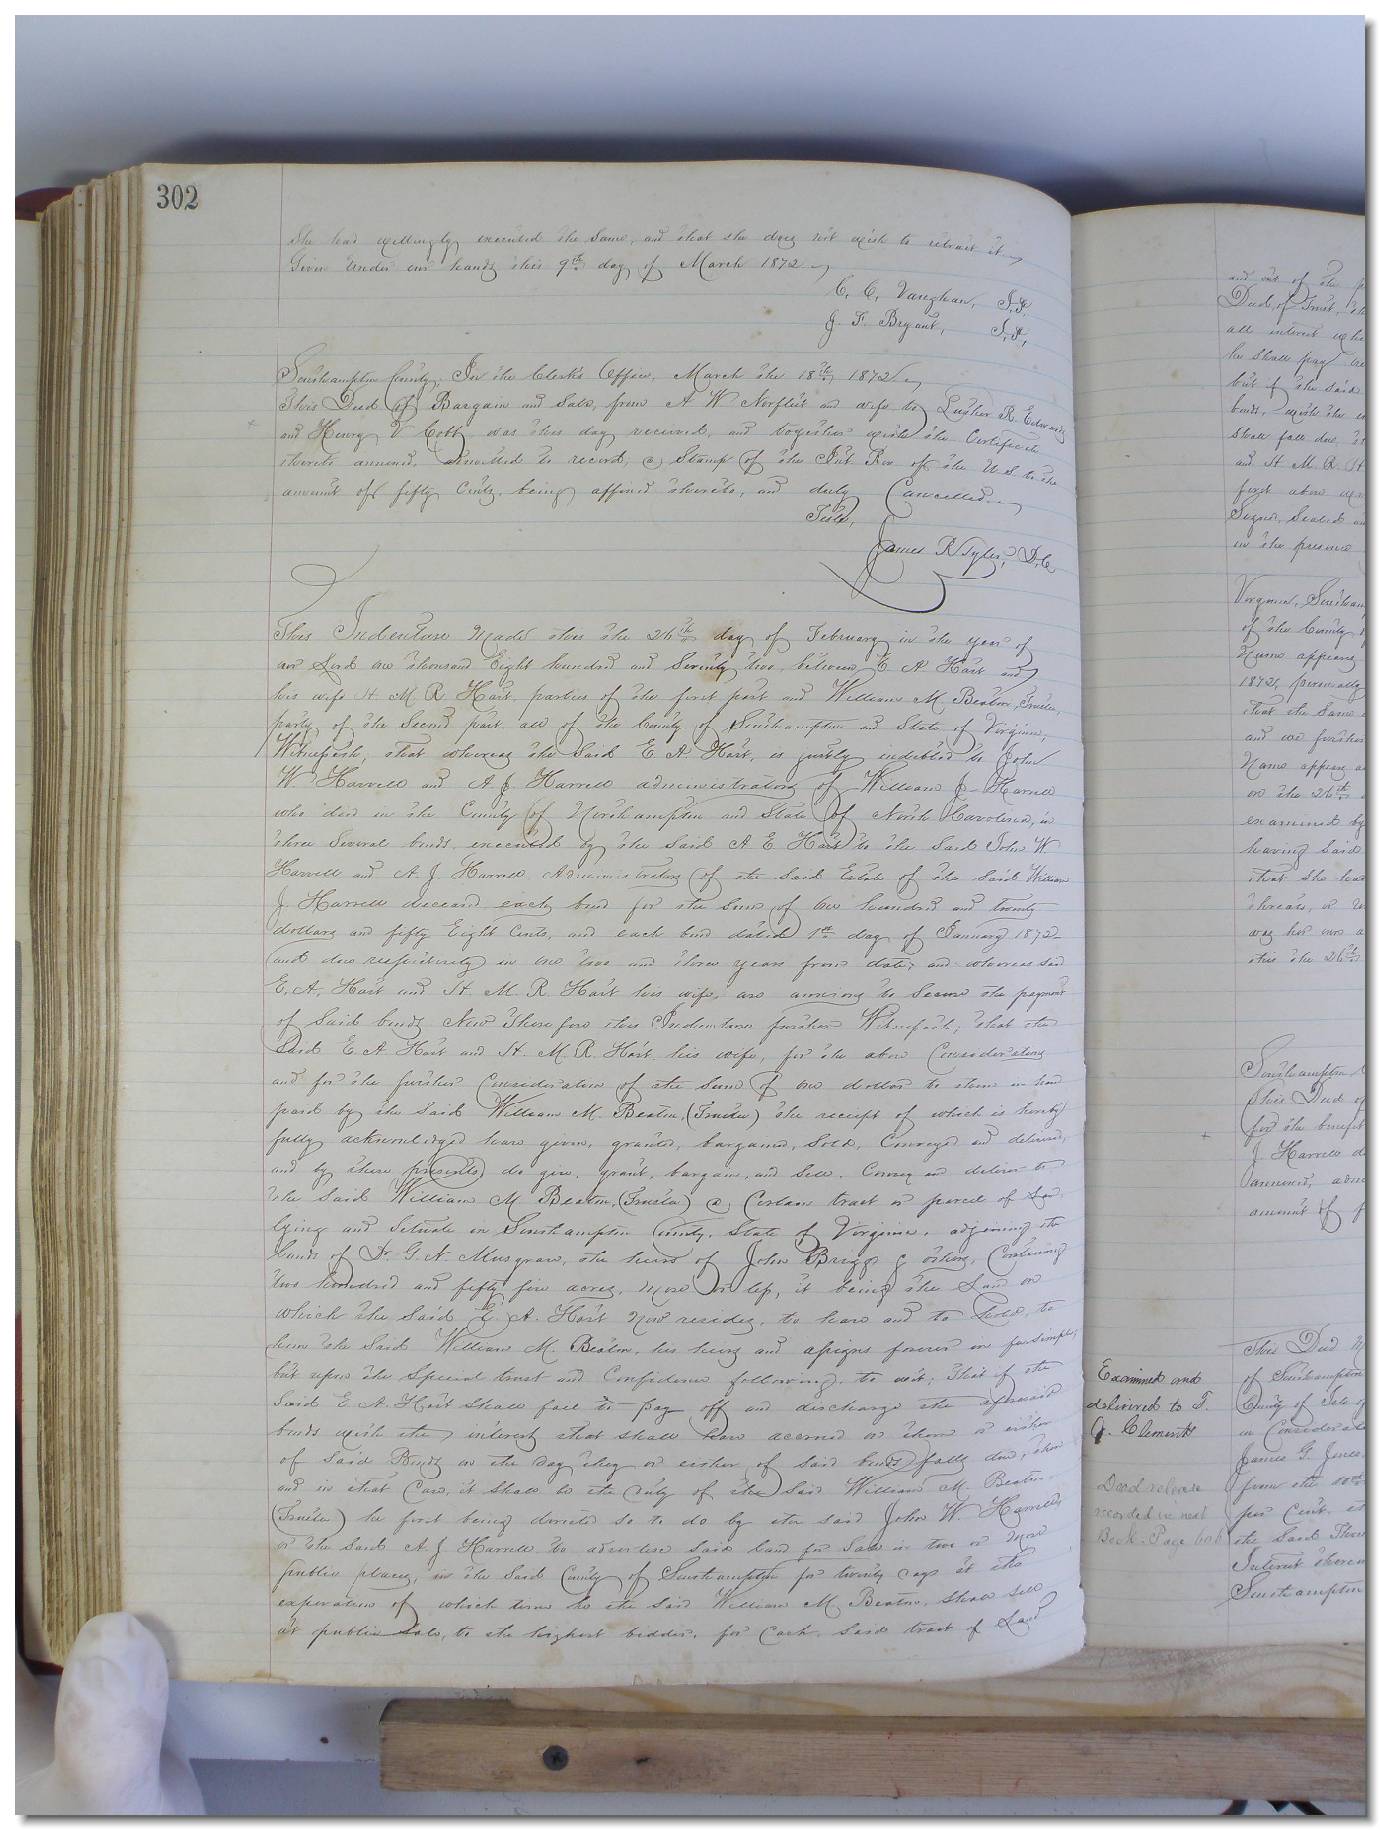 302
She had willingly executed the same, and that she does not wish to retract it.
Given under our hands this 9th day of March 1872
C. C. Vaughan, J.P.
J. F. Bryant, J.P.
Southampton County. In the Clerk's Office, March the 18th 1872
This Deed of Bargain and Sale, from A W Norfleet and wife to Luther R. Edwards
and Henry V Cobb was this day received, and together with the Certificate
thereto annexed, admitted to record, a Stamp of the Int Rev of the U.S. to the
amount of fifty Cents, being affixed thereto, and duly Cancelled.
Teste,
James R Tyler, D.C.
This Indenture Made this the 26th day of February in the year of
our Lord one thousand Eight hundred and Seventy two, between E A Hart and
his wife H M R Hart, parties of the first part and William M. Beaton, Trustee,
party of the Second part, all of the County of Southampton and State of Virginia,
Witnesseth, that whereas the Said E. A. Hart, is justly indebted to John
W Harrell and A. J. Harrell administrators of William J. Harrell
who died in the County of Northampton and State of North Carolina, in
three Several bonds, executed by the Said A E Hart to the Said John W
Harrell and A. J. Harrell Administrators of the Said Estate of the Said William
J. Harrell deceased each bond for the Sum of One hundred and twenty
dollars and fifty Eight Cents, and each bond dated 1st day of January 1872
and due respectively in one two and three years from date; and whereas said
E. A. Hart and H. M. R. Hart his wife, are anxious to Secure the payment
of Said bonds Now Therefore this Indenture further Witnesseth; that the
Said E. A Hart and H. M. R. Hart his wife, for the above Consideration
and for the further Consideration of the Sum of one dollar to them in hand
paid by the Said William M. Beaton, (Trustee) the receipt of which is hereby
fully acknowledged have given, granted, bargained, Sold, Conveyed and delivered,
and by these presents do give, grant, bargain, and Sell, Convey and deliver to
the Said William M. Beaton, (Trustee) a Certain tract or parcel of Land
lying and Situate in Southampton County, State of Virginia, adjoining the
lands of Dr. G. N. Musgrave, the heirs of John Briggs & others, Containing
two hundred and fifty five acres, more or less, it being the Land on
which the Said E. A. Hart Now resides, to have and to hold, to
him the Said William M. Beaton, his heirs and assigns forever in fee simple,
but upon the Special trust and Confidence following, to wit; That if the
Said E. A. Hart Shall fail to pay off and discharge the aforesaid
bonds with the interest that Shall have accrued on them or either
of Said Bonds on the day they or either of Said bonds falls due, then
and in that Case, it Shall be the duty of the Said William M. Beaton,
(Trustee) he first being directed so to do by the said John W. Harrell
or the Said A J Harrell to advertise Said land for Sale in two or more
public places, in the Said County of Southampton for twenty days at the
expiration of which time he the Said William M Beaton, Shall Sell
at public Sale, to the highest bidder, for Cash, Said tract of Land
and out of the
Deed of Trust,
all interest
he shall pay
but if the said
bonds, with the
shall fall due,
and H M. R. H
first above
Signed, Sealed
in the presence
Virginia,
of the County
Name appears
1872, personally
that the Same
and we further
Name appears
on the 26th
examined by
having Said
that She had
threats, or
was her own
this the 26th
Southampton
This Deed of
for the benefit
J. Harrell
annexed,
amount of
Examined and
delivered to T.
J. Clements
Deed release
recorded in next
Book. Page 606
This Deed
of Southampton
County of Isle of
in Consideration
James G. Jones
from the
per Cent.
the Said
Interest thereon
Southampton